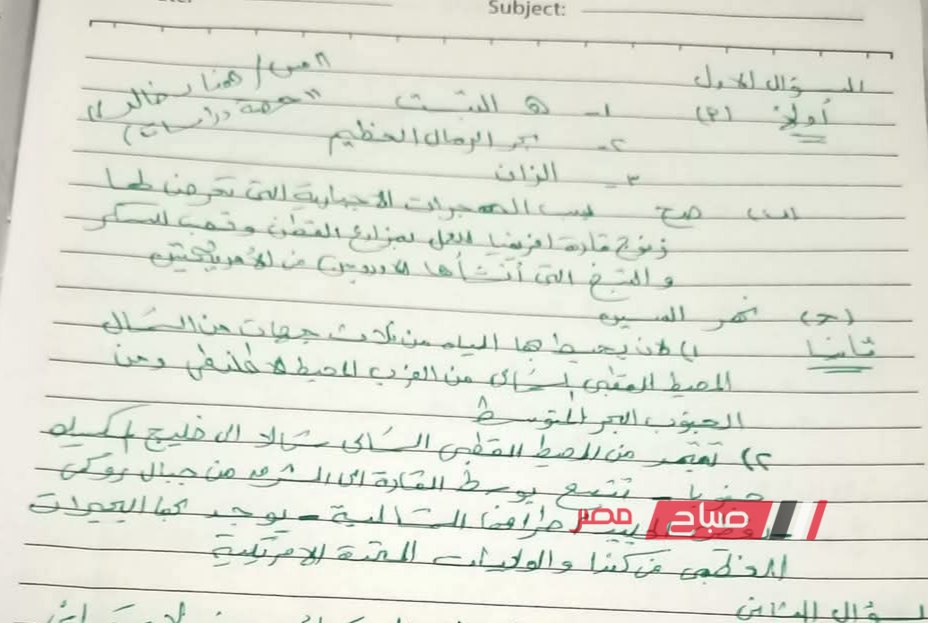 Subject:
السؤال الاول
أولاً (P) ١- هـ التبت "مس/هنا خالد"
٢- بحر الرمال العظيم "مهمة دراسات"
٣- الزان
(ب) صح بسبب الهجرات الاجبارية التى تعرض لها
زنوج قارة افريقيا للعمل بمزارع القطن وقصب السكر
والتبغ التى أنشأها الاوربيين فى الأمريكتين
(ج) نهر السين
ثانيا ١) لان يحيط بها المياه من ثلاث جهات من الشمال
المحيط القطبى الشمالى من الغرب المحيط الاطلنطى ومن
الجنوب البحر المتوسط
٢) تمتد من المحيط القطبى الشمالى شمالا الى خليج المكسيك
جنوبا - تتسع بوسط القارة الى الشرق من جبال روكى
الشمالية - يوجد بها البحيرات
العظمى فى كندا والولايات المتحدة الامريكية
السؤال الثانى
صباح مصر